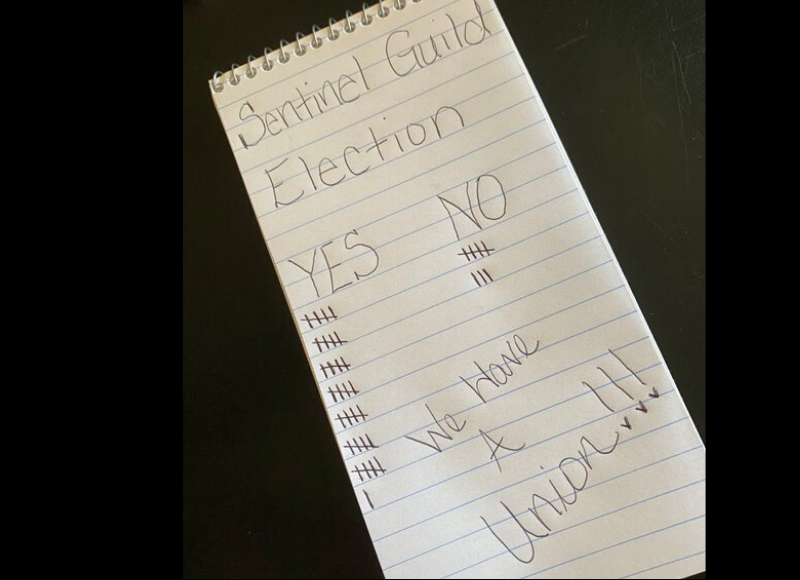 Sentinel Guild
Election
YES NO
We Have
A
Union!!!